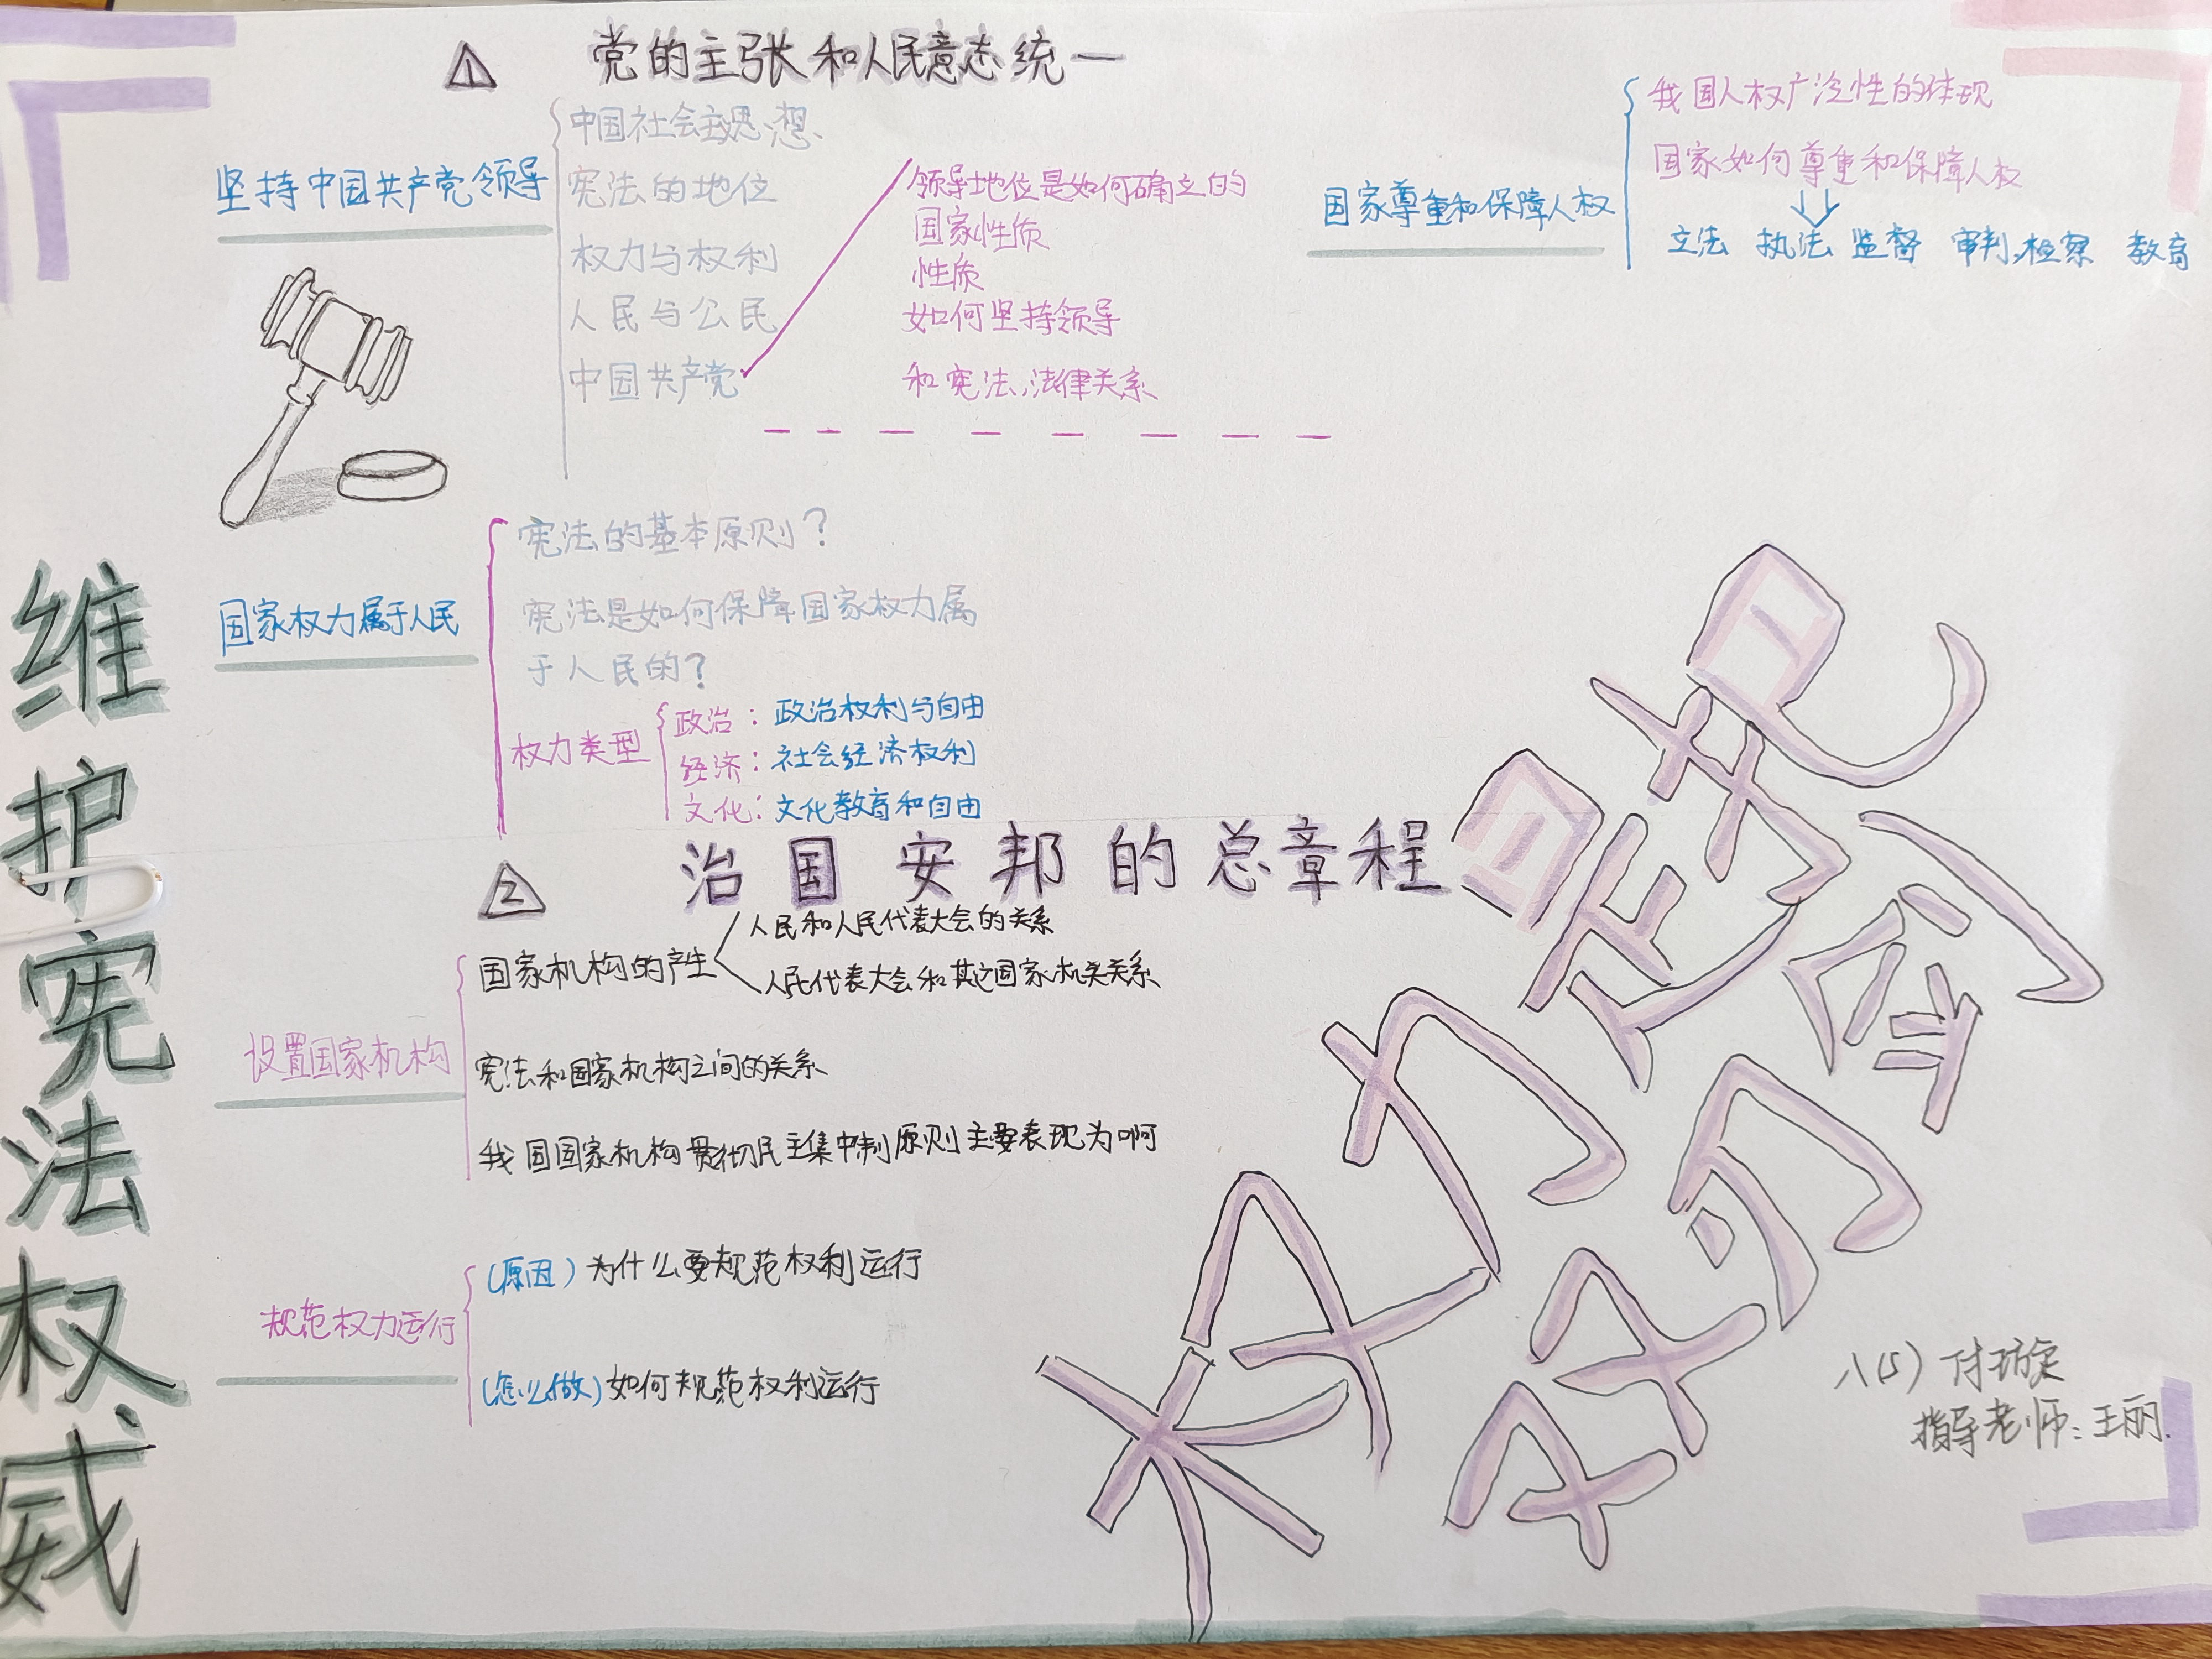 维护宪法权威
1 党的主张和人民意志统一
坚持中国共产党领导
中国社会主义思想
宪法的地位
权力与权利
人民与公民
中国共产党
领导地位是如何确立的
国家性质
性质
如何坚持领导
和宪法,法律关系
国家尊重和保障人权
我国人权广泛性的体现
国家如何尊重和保障人权
立法 执法 监督 审判,检察 教育
国家权力属于人民
宪法的基本原则?
宪法是如何保障国家权力属
于人民的?
权力类型
政治:政治权利与自由
经济:社会经济权利
文化:文化教育和自由
2 治国安邦的总章程
设置国家机构
国家机构的产生
人民和人民代表大会的关系
人民代表大会和其它国家机关关系
宪法和国家机构之间的关系
我国国家机构贯彻民主集中制原则主要表现为啊
规范权力运行
(原因)为什么要规范权利运行
(怎么做)如何规范权利运行
权力是把
双刃剑
八(5)
指导老师:王丽